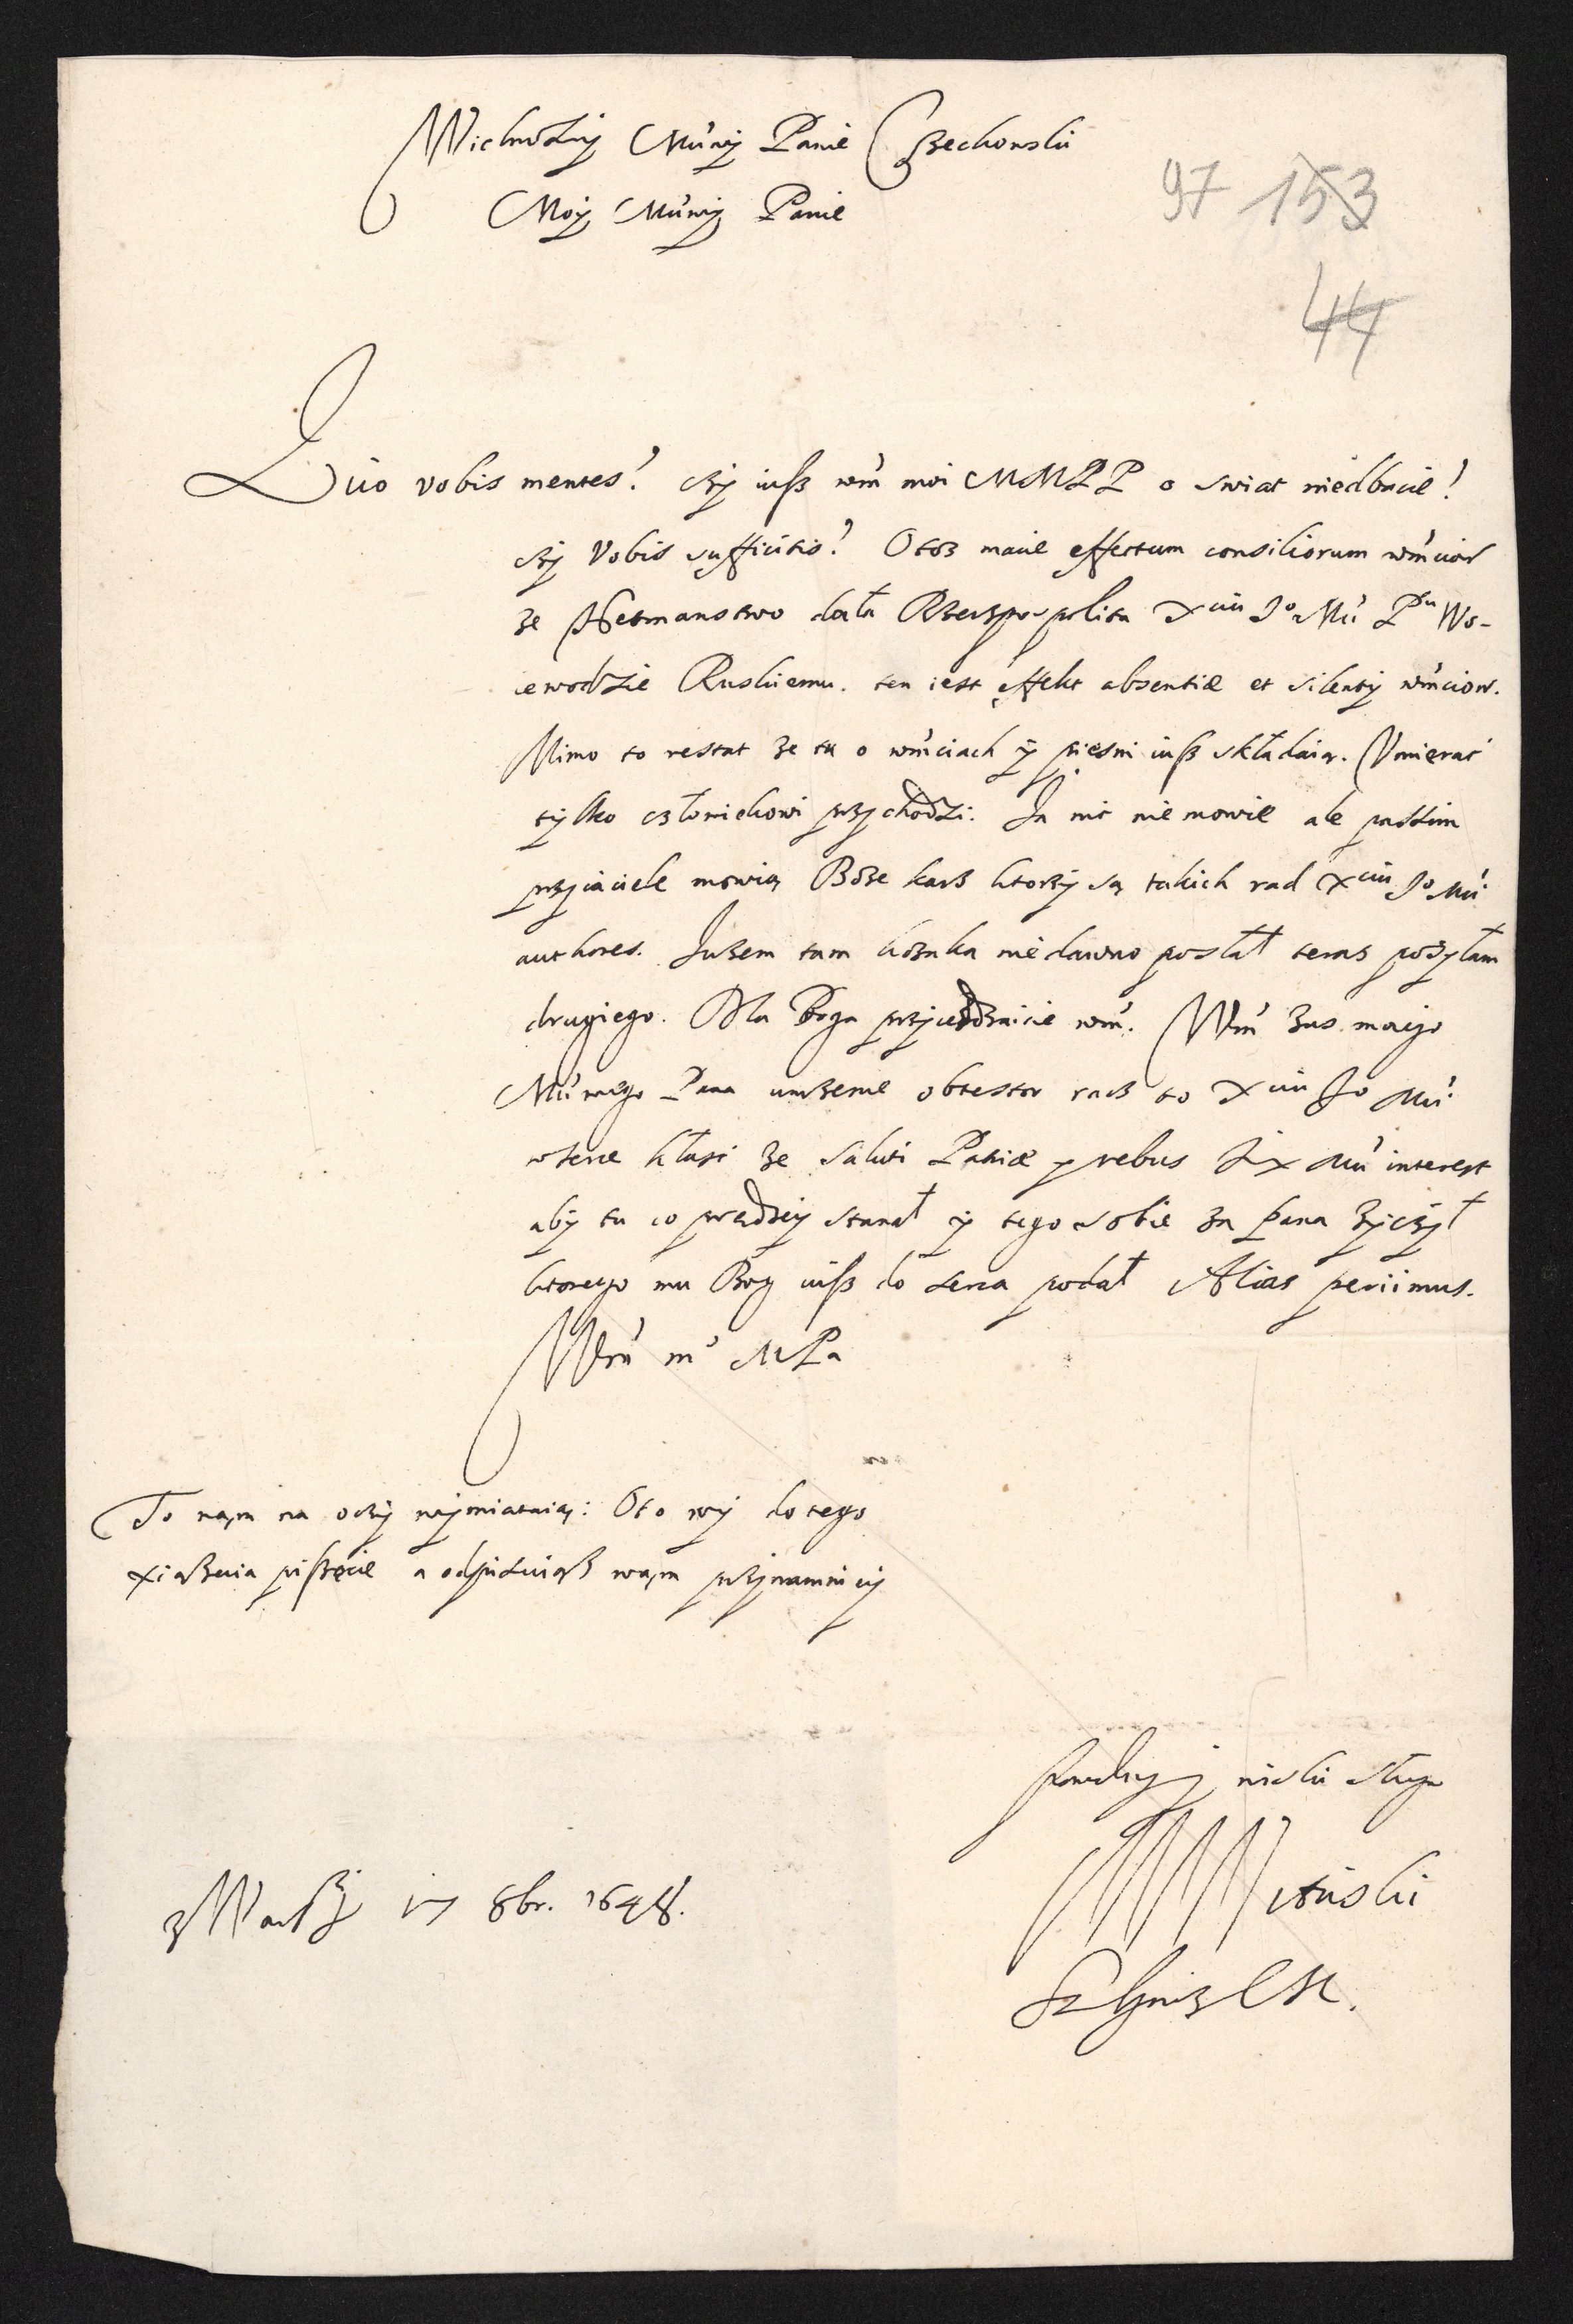 Wielmozny Mći Panie Czechowski
Moy Mćiwy Panie
97 153
44
Quo vobis mentes? czy iusz wm̃ moi MMPP o swiat niedbacie?
czy vobis sufficitis? Otoz macie effectum consiliorum wm̃ciow
ze Hetmanstwo dała Rzeczpospolita Xciu Jo Mći Pnu Wo-
iewodzie Ruskiemu. ten iest effekt absentiæ et silentij wm̃ciow.
Mimo to restat ze tu o wm̃ciach y piesni iusz składaią. Vmierać
tylko człowiekowi przychodzi. Ja nic nie mowie ale passim
przyiaciele mowią Boze karz ktorzy są takich rad Xciu Jo Mći
authores. Juzem tam kozaka niedawno posłał teraz posyłam
drugiego. Dla Boga przyiezdzaicie wm̃. Wm̃ zas moiego
Mćiwego Pana unizenie obtestor racz to Xciu Jo Mći
w serce kłasć ze saluti Patriæ y rebus JX Mći interest
aby tu co prędzey stanął y tego sobie za pana zyczył
ktorego mu Bog iusz do serca podał Alias periimus.
Wm̃ m MPa
To nąm na oczy wymiataią: Oto wy do tego
xiązęcia piszęcie a odpisuiąsz wąm przynamniey
powolny y niski sługa
ski
z Warszy 17 8br. 1648.